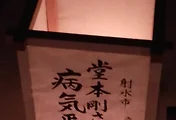 射水市
堂本剛さ
病気